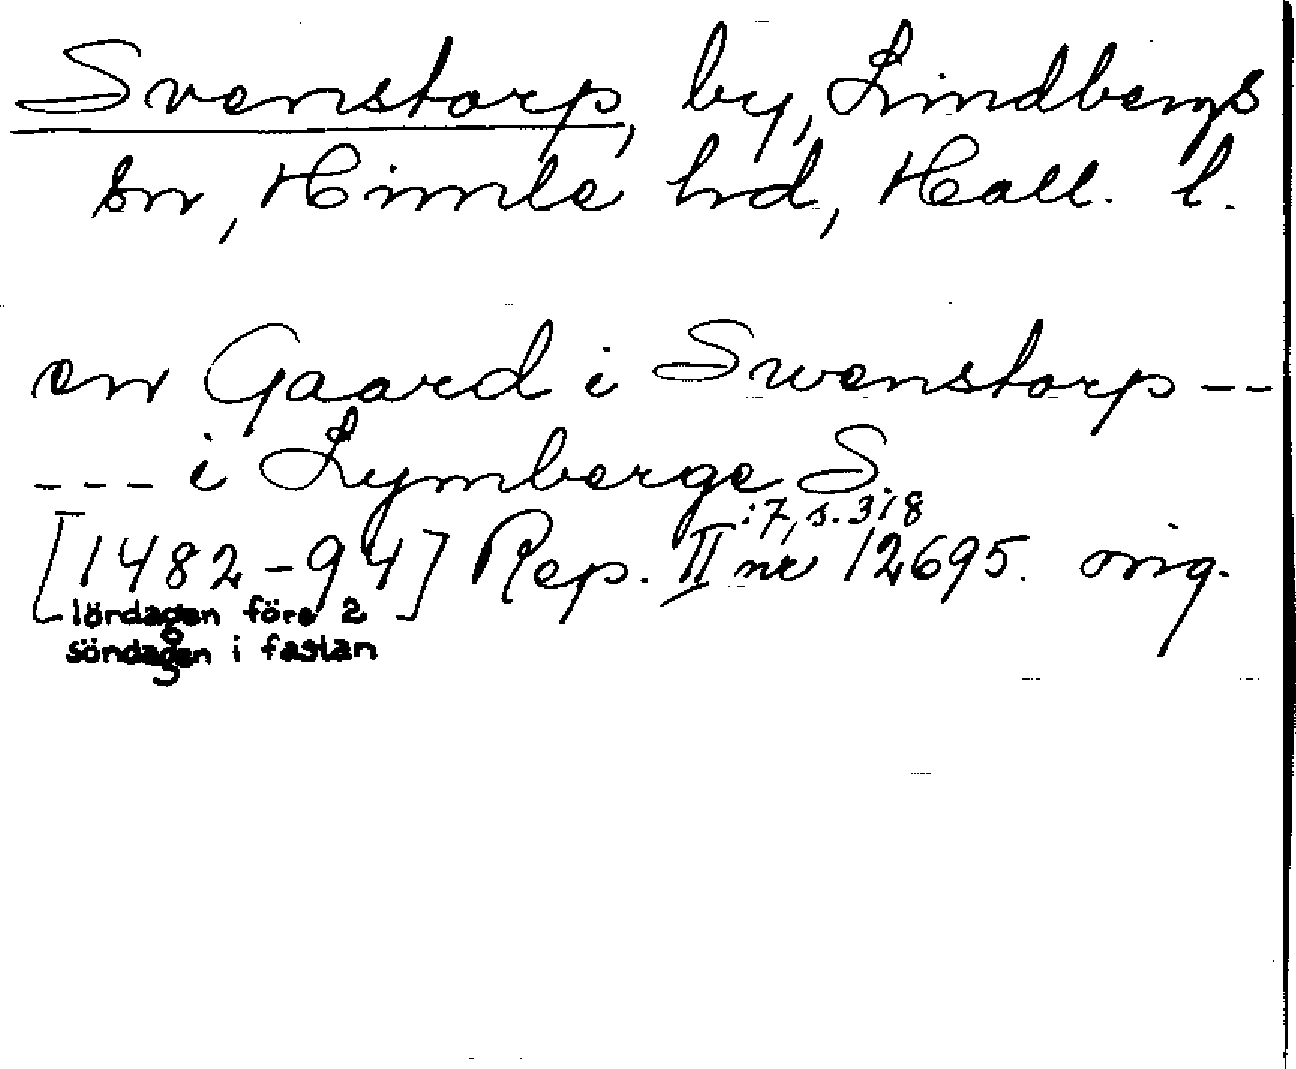 Svenstorp, by, Lindbergs
sn, Himle hd, Hall. l.
en Gaard i Swenstorp --
--- i Lymberge S.
[1482-94] Rep. II:7, s. 318 nr 12695. orig.
lördagen före 2
söndagen i fastan